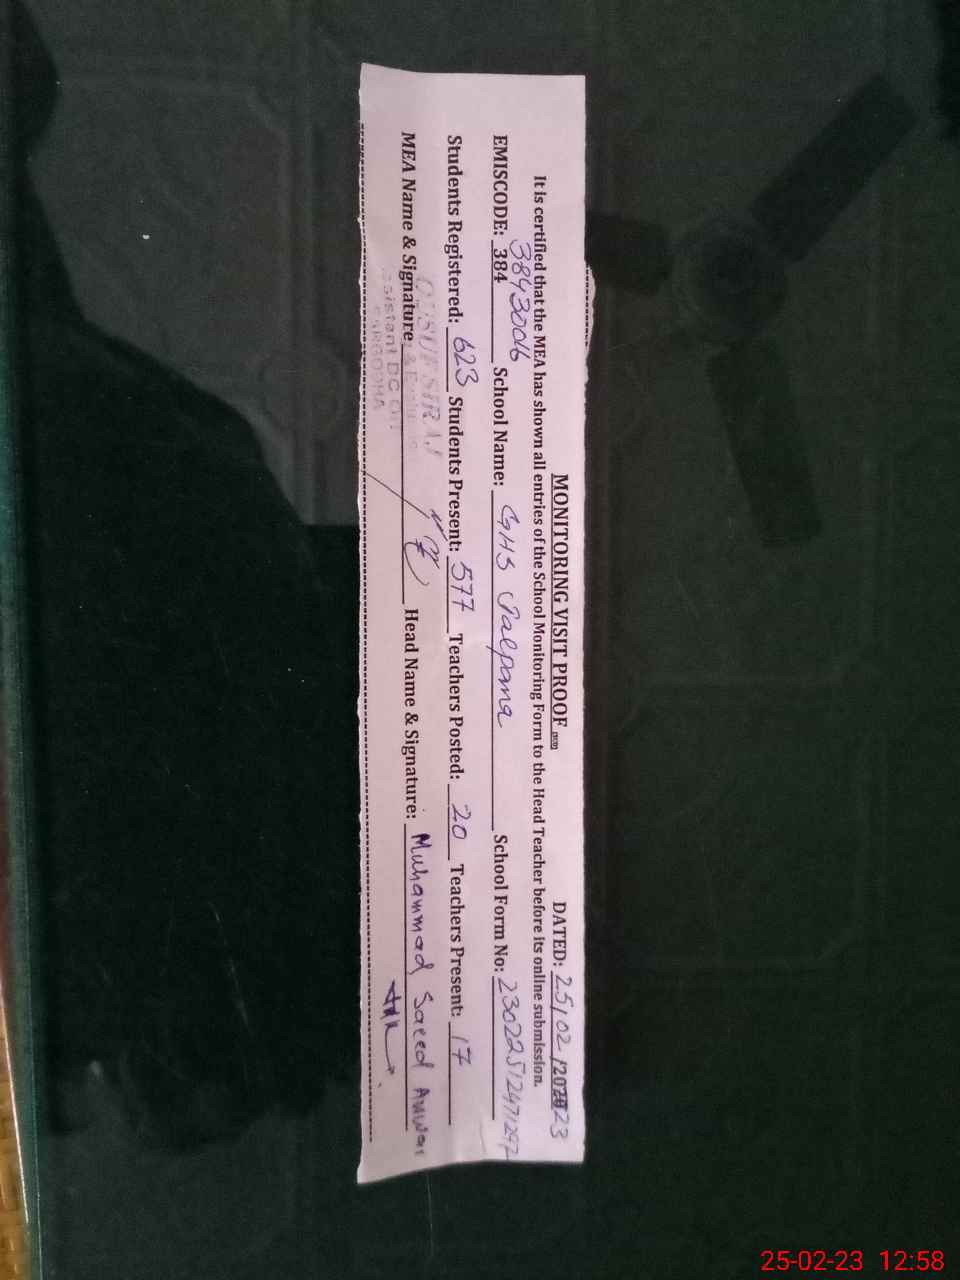 MONITORING VISIT PROOF
DATED: 25/02/2023
It is certified that the MEA has shown all entries of the School Monitoring Form to the Head Teacher before its online submission.
EMISCODE: 384 38430016 School Name: GHS Jalpana School Form No: 23022512471297
Students Registered: 623 Students Present: 577 Teachers Posted: 20 Teachers Present: 17
MEA Name & Signature Head Name & Signature: Muhammad Saeed Anwar
SARGODHA
25-02-23 12:58